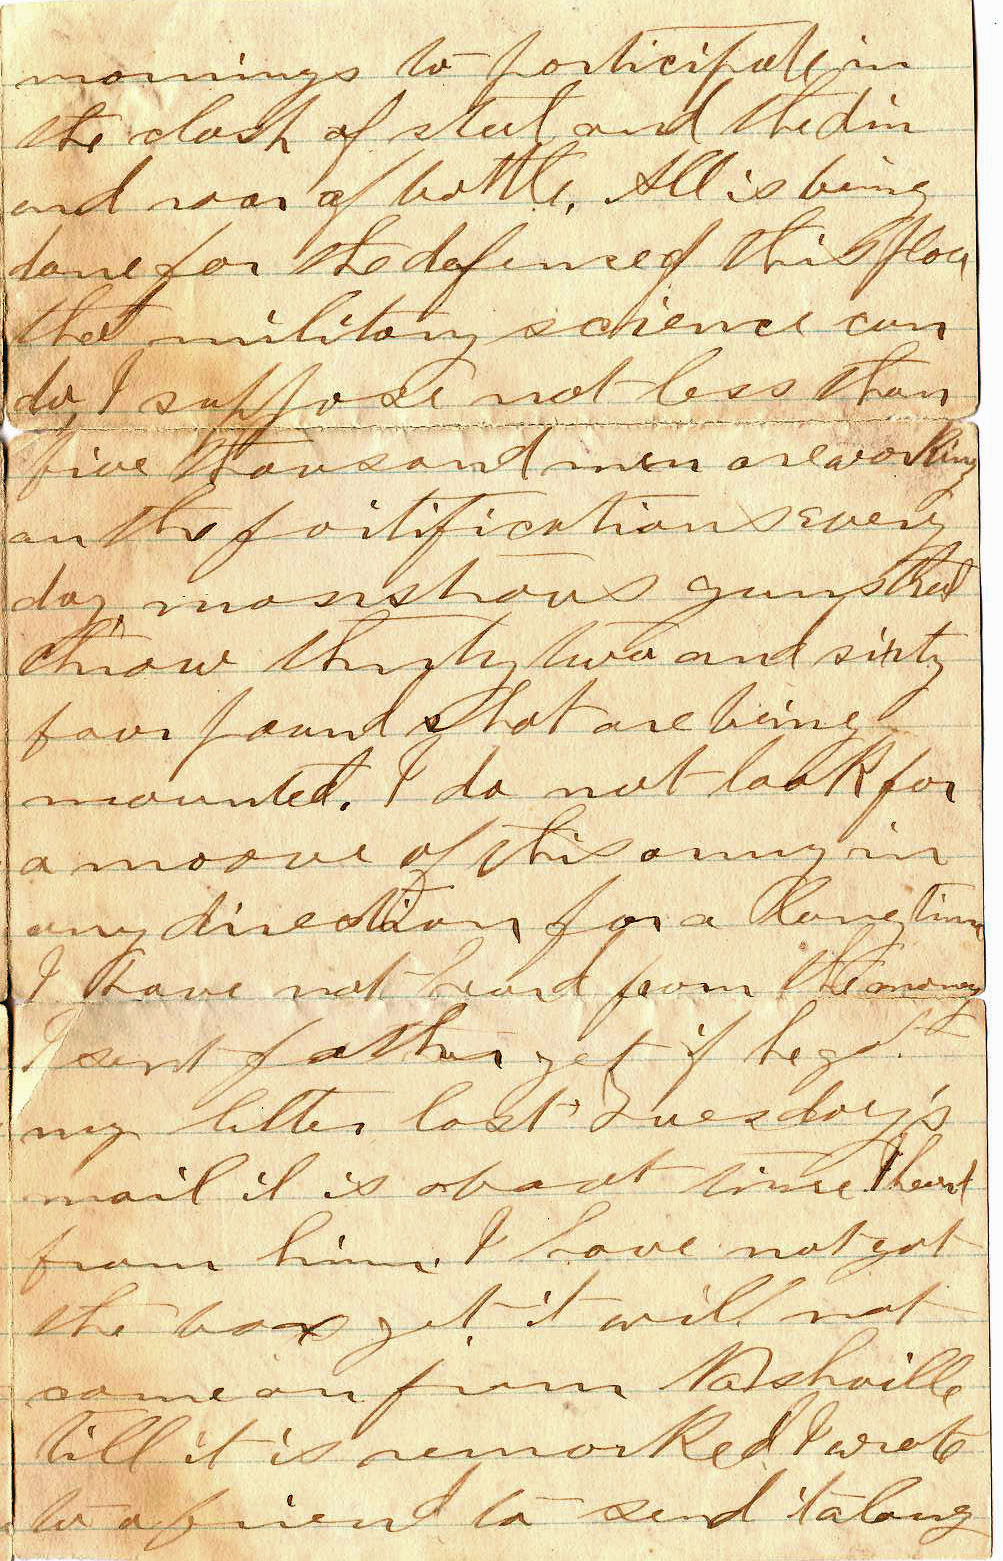 mornings to participate in
the clash of steel and the din
and roar of battle. All is being
done for the defense of this place
that military science can
do, I suppose not less than
five thousand men are working
on the fortifications every
day, monstrous guns that
throw thirty two and sixty
four pound shot are being
mounted. I do not look for
a moove of this army in
any direction for a long time
I have not heard from the money
I sent father yet if he got
my letter last Tuesday's
mail it is about time I heard
from him. I have not got
the box yet it will not
come on from Nashville
till it is remarked I wrote
to a friend to send it along